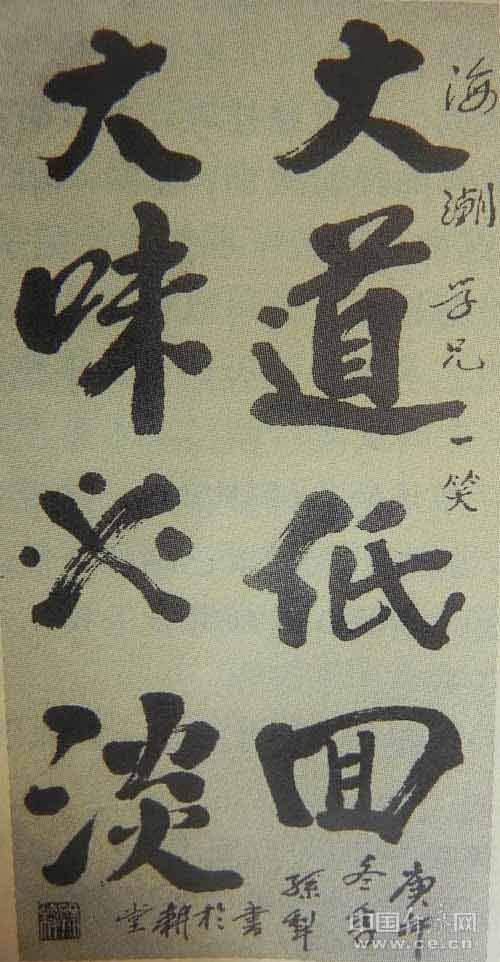 海潮学兄一笑
大道低回
大味必淡
庚午
冬
孫犁
書於耕堂
中国经济网
www.ce.cn